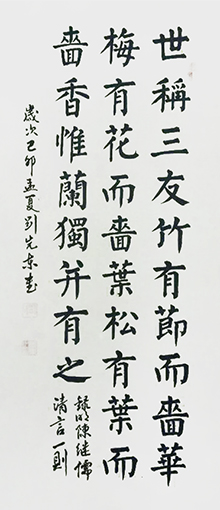 世稱三友竹有節而嗇華
梅有花而嗇葉松有葉而
嗇香惟蘭獨并有之
錄明陳继儒
清言一則
歲次己卯孟夏刘先東书